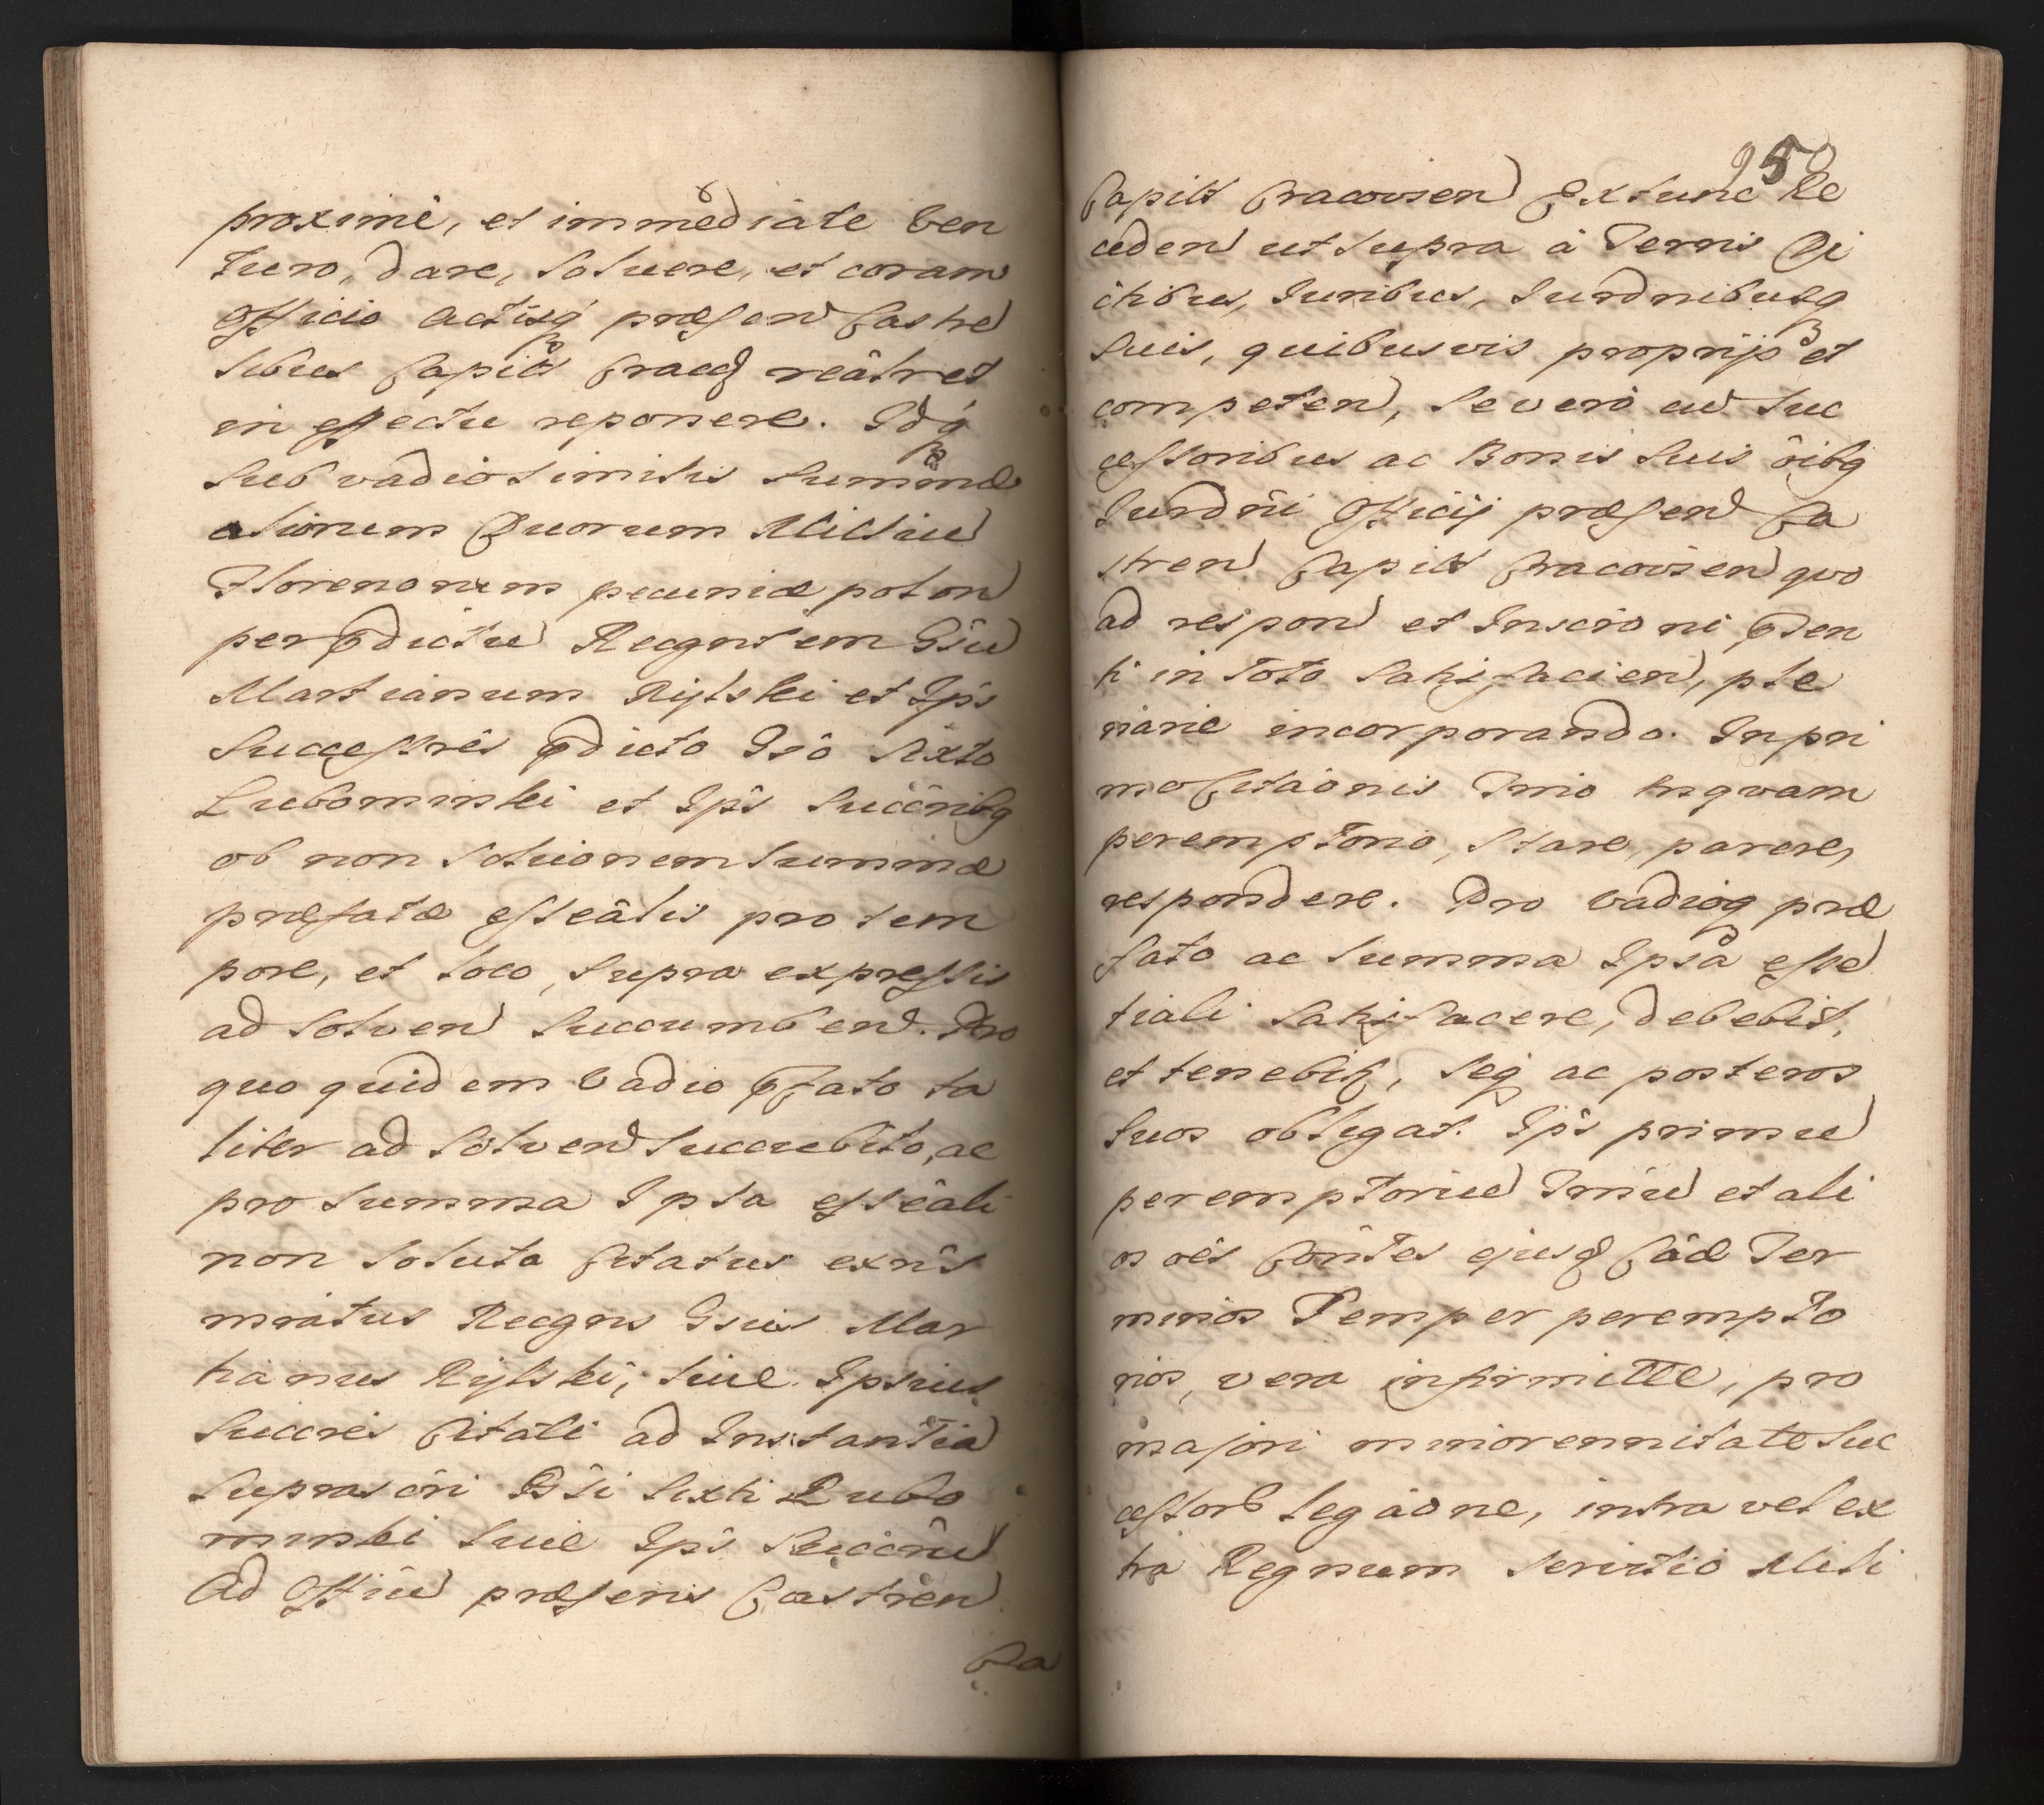 proxime, et immediate ven
turo, dare, solvere, et coram
Officio Actisq præsen Castre
sibus Capits Cracq realr et
in effectu reponere. Idq
sub vadio similis Summæ
Florenorum pecuniæ polon
per pdictu Recgntem Gsu
Martianum Rylski et Ips
Successres pdicto Gso Sixto
Lubominski et Ips Succribq
ob non Soluionem Summæ
præfatæ essealis pro tem
pore, et loco, supra expressis
ad solven succumben. Pro
quo quidem Vadio pfato ta
liter ad solven succubito, ac
pro Summa Ipsa esseali
non soluta Citatus exns
Recgns Gsus Mar
tianus Rylski, sive Ipsius
Succres Citati ad Instantia
suprascri Gsi Sixti Lubo
minski sive Ips Succru
Ad Offiu præsens Castren
Ca
95
Capits Cracovien Extunc Re
ceden ut supra a Terris Di
ctibus, Juribus, Jurdnibusq
suis, quibusvis proprijs et
competen, se vero cu suc
cessoribus ac Bonis suis oibq
Jurdni Officij præsen Ca
stren Capits Cracovien quo
ad respon et Inscroni pden
ti in toto satisfacien, ple
narie incorporando. In pri
mo Citaonis Trmo tnqvam
peremptorio, stare, parere,
respondere. Pro vadioq præ
fato ac Summa Ipsa esse
tiali satisfacere, debebit,
et tenebitr, seq ac posteros
suos obligat. Ips primu
peremptoriu Trmu et ali
os oes Contes ejusq Cæ Ter
minos semper perempto
rios, vera infirmitte, pro
majori minorennitate Suc
cessor legaone, intra vel ex
tra Regnum servitio Mili